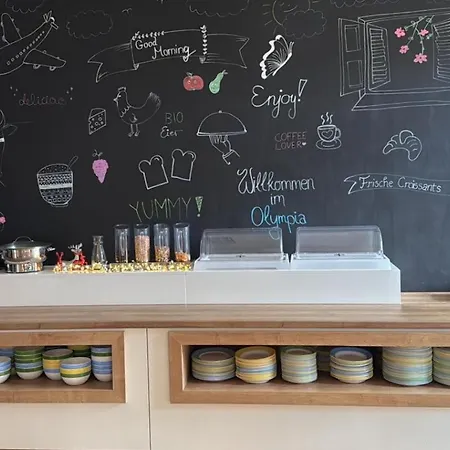 Good
Morning
delicious
BIO
Eier
Enjoy!
COFFEE
LOVER
Willkommen
im
Olympia
Frische Croissants
YUMMY!